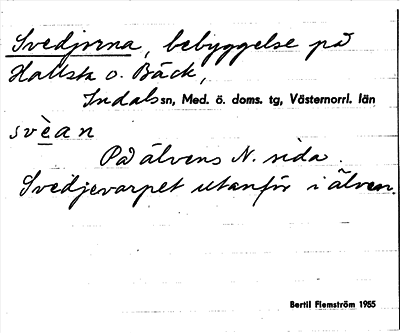 Svedjorna, bebyggelse på
Hallsta o. Bäck,
Indals sn, Med. ö. doms. tg, Västernorrl. län
svèan
På älvens N. sida.
Svedjevarpet utanför i älven.
Bertil Flemström 1955